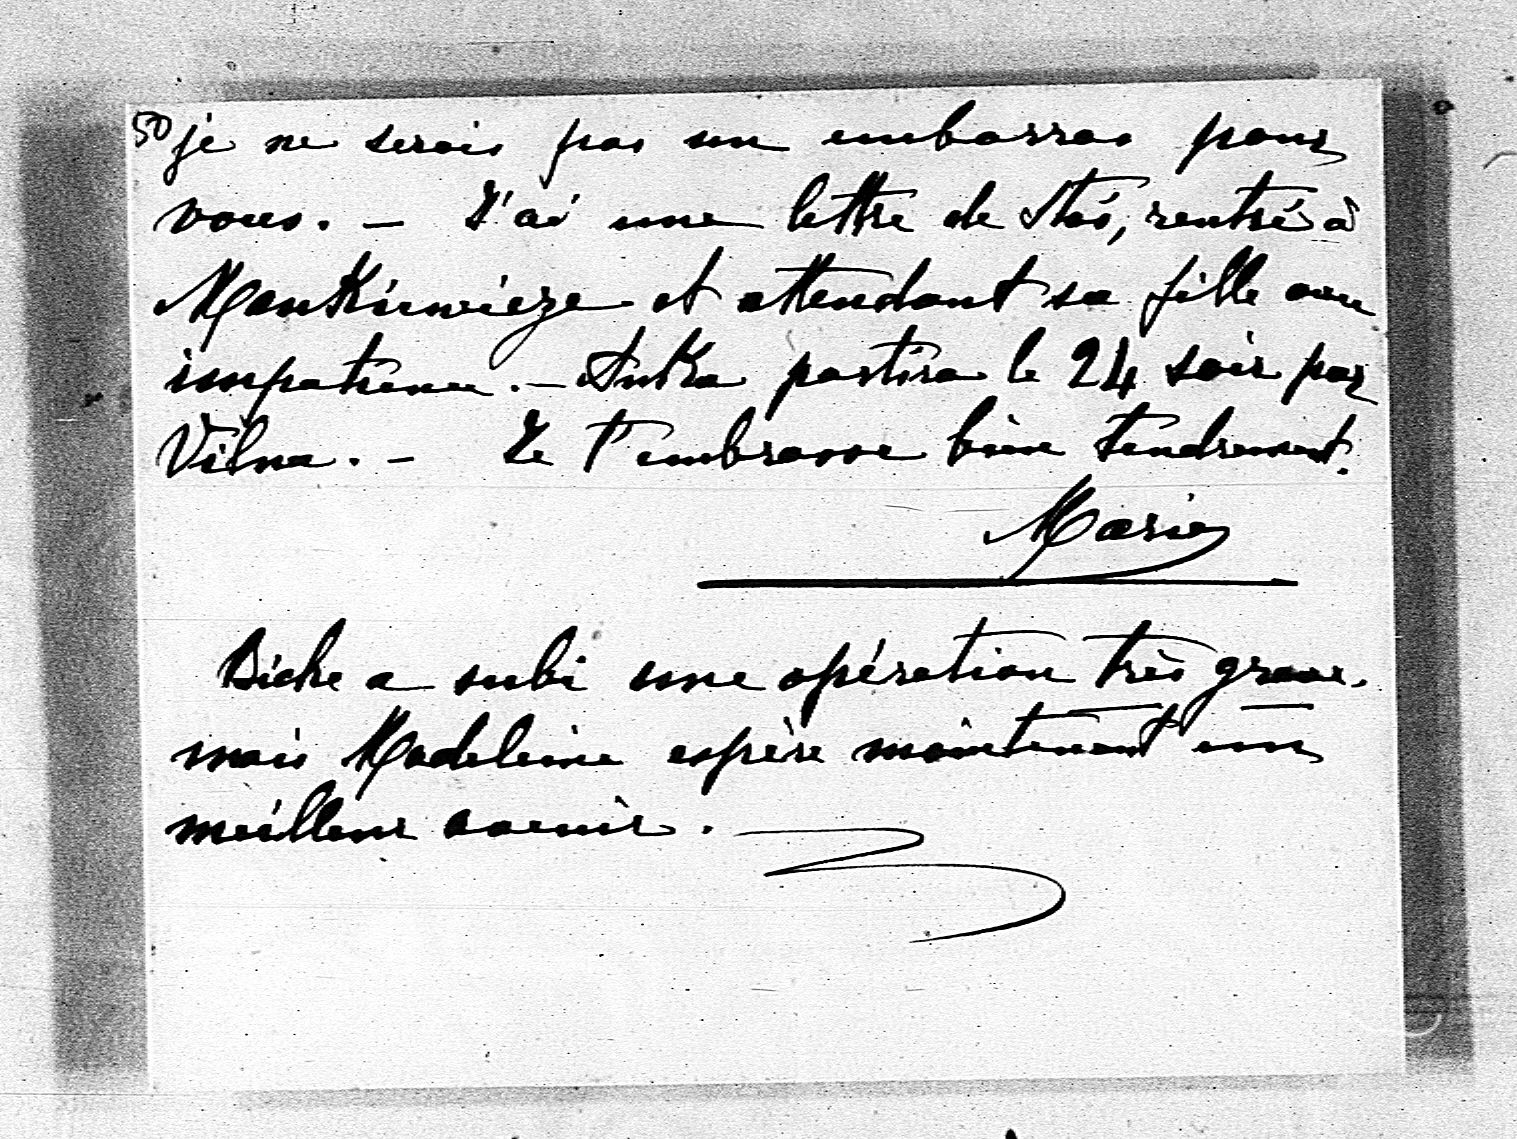 50 je ne serais pas un embarras pour
vous. – J'ai une lettre de Staś, rentré à
Mankiewicze et attendant sa fille avec
impatience. – Anka partira le 24 soir par
Vilna. – Je t'embrasse bien tendrement.
Marie
Biche a subi une opération très grave,
mais Madeleine espère maintenant un
meilleur avenir.